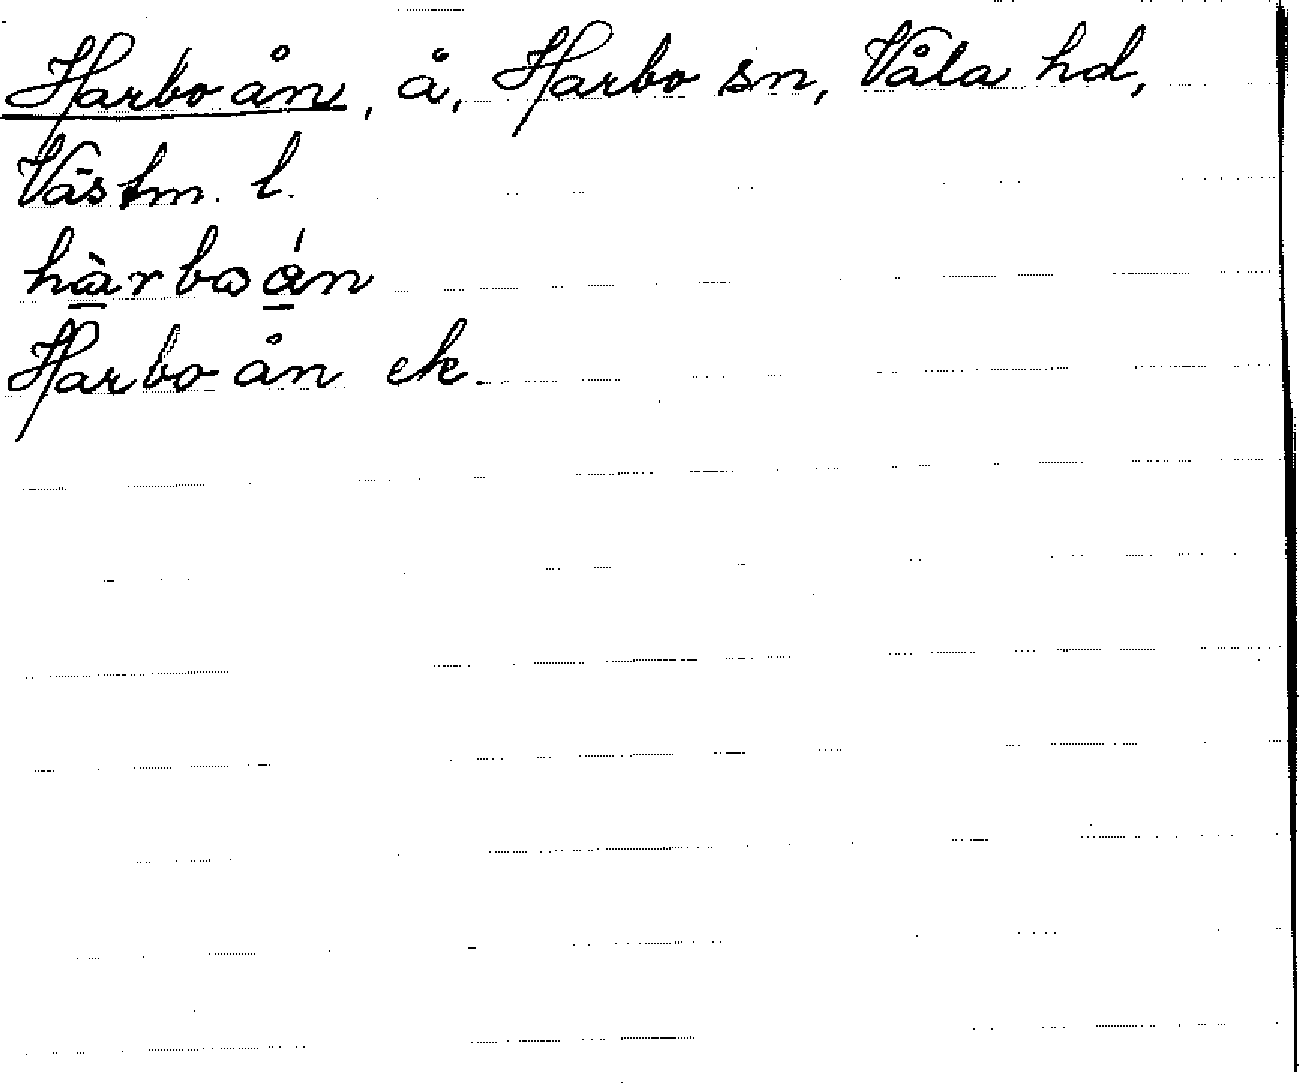 Harboån, å, Harbo sn, Våla hd,
Västm. l.
hàrboá̱n
Harboån ek.